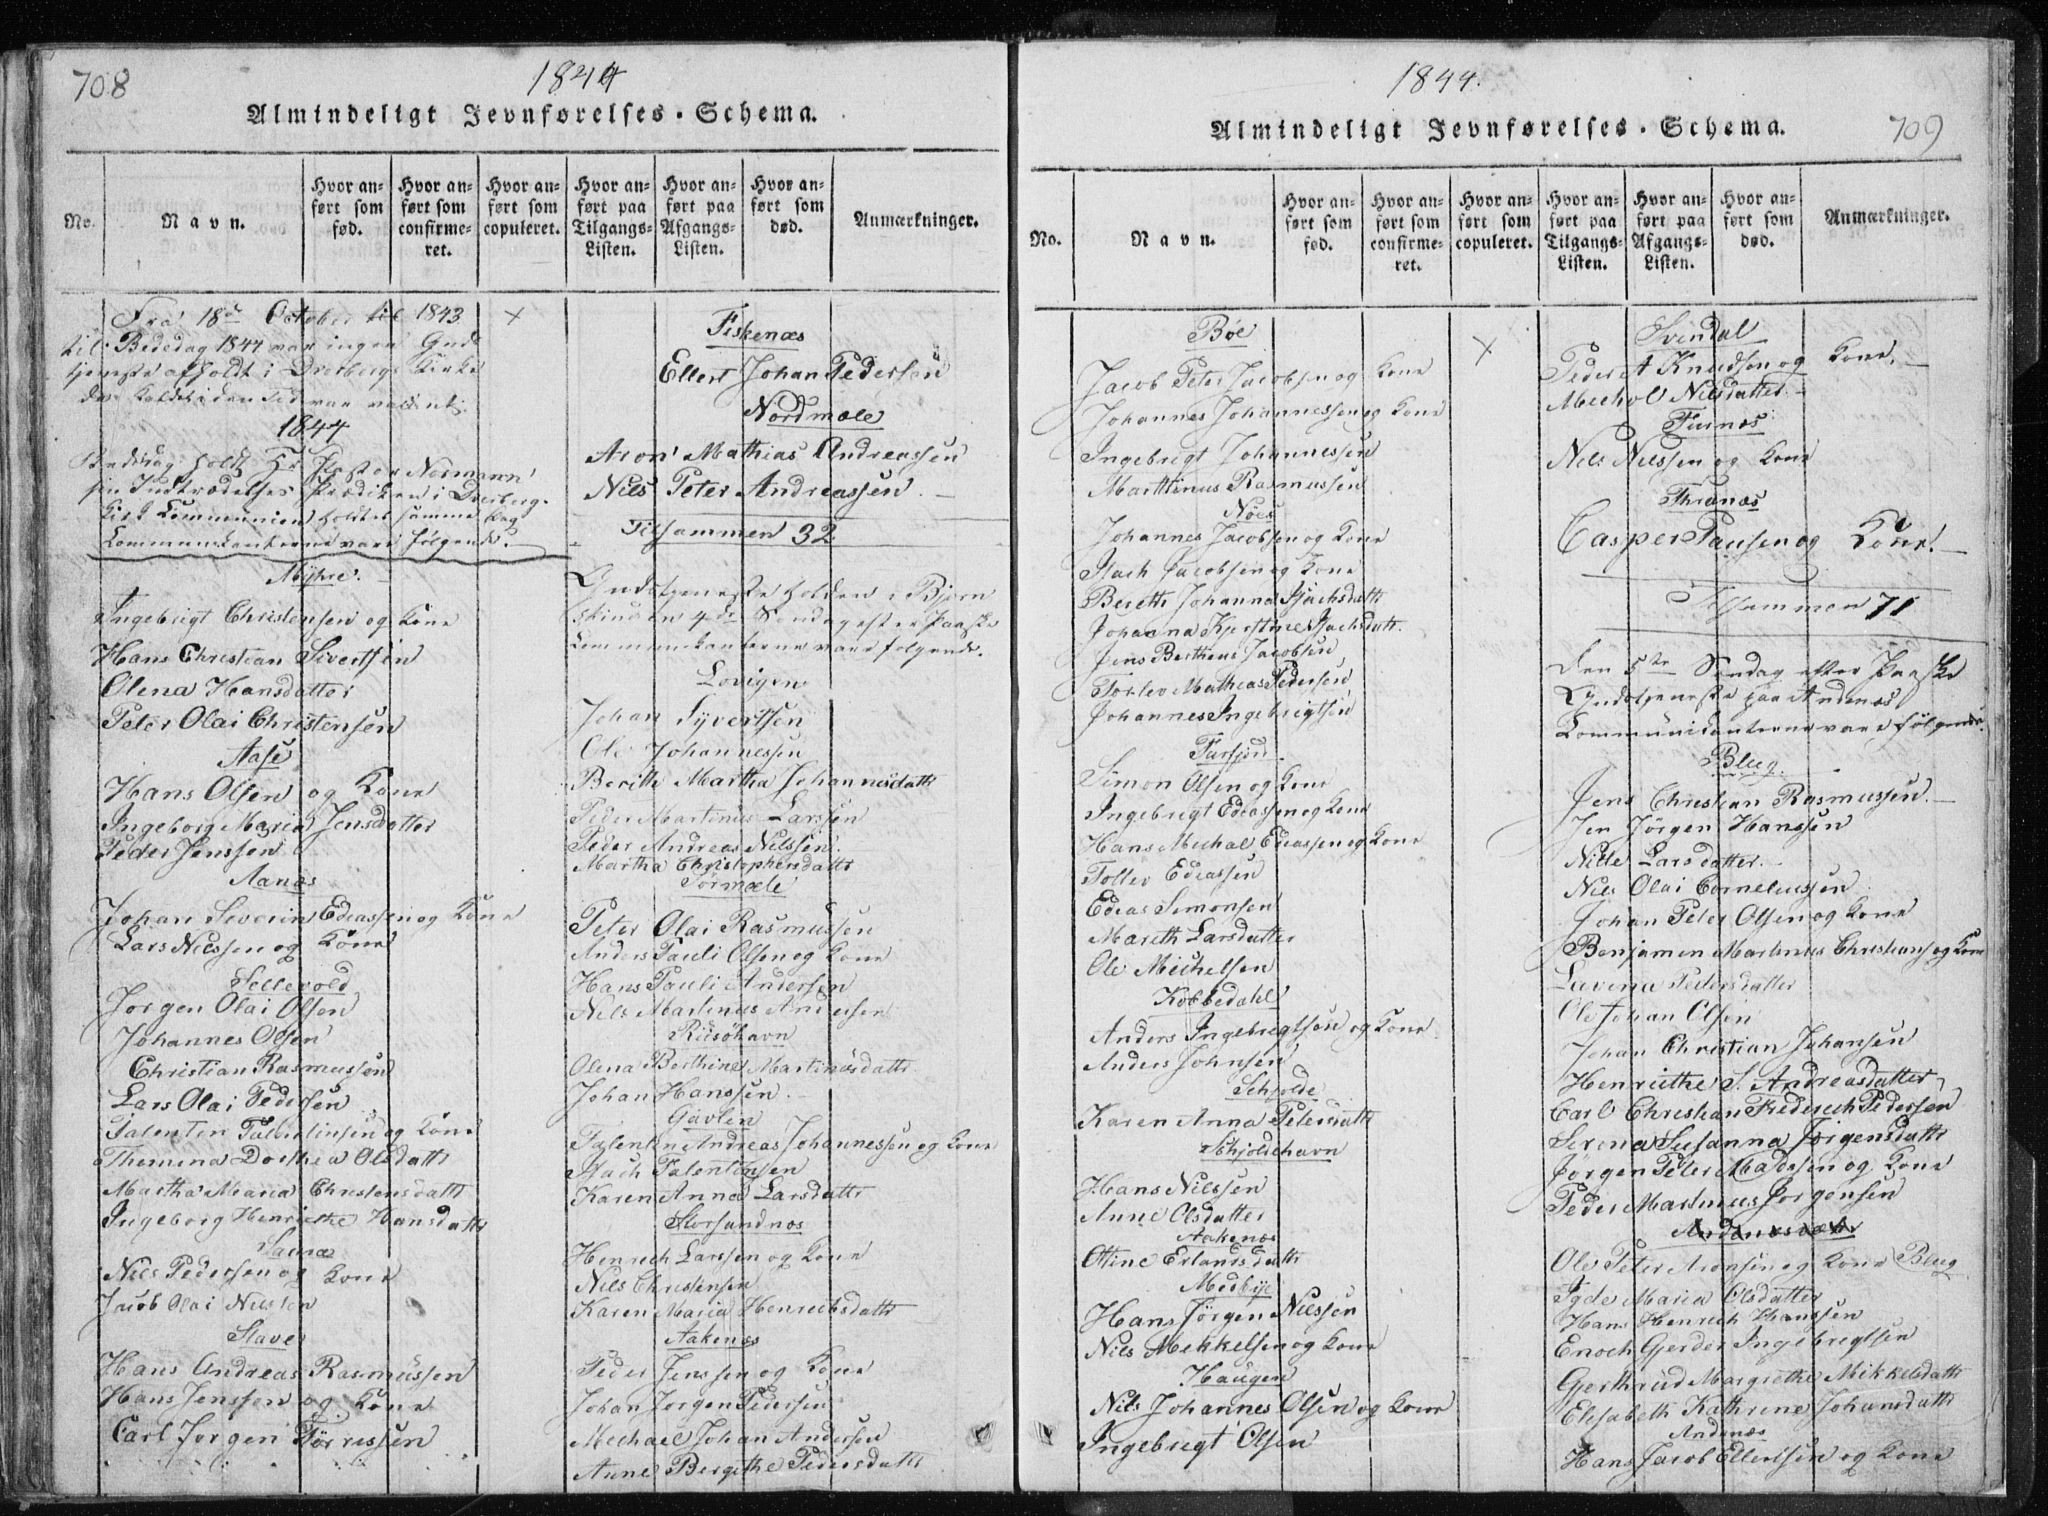 708
1844
Almindeligt Jevnførelses-Schema.
No.
Navn.
Hvor an-
ført som
fød.
Hvor an-
ført som
confirme-
ret.
Hvor an-
ført som
copuleret.
Hvor an-
ført paa
Tilgangs-
Listen.
Hvor an-
ført paa
Afgangs-
Listen.
Hvor an-
ført som
død.
Anmærkninger.
Fra 18de October til 1843
til Bededag 1844 var ingen Gude
tjeneste afholdt i Dverbergs Kirke
da Kaldet i den Tid var
1844
Bededag holdt Hr Pastor Normann
sin Indtrædelses Prædiken i Dverberg
Kirk Communion holdtes samme Dag
Communikanterne vare følgende.
Myhre.
Ingebrigt Christensen og Kone
Hans Christian Sivertsen
Olena Hansdatter
Peter Olai Christensen
Aase
Hans Olsen og Kone
Ingeborg Maria Jensdatter
Peder Jenssen
Aanæs
Johan Severin Edeassen og Kone
Lars Nilssen og Kone
Sellevold
Jørgen Olai Olsen
Johannes Olsen
Christian Rasmussen
Lars Olai Pedersen
Falentin Falentinsen og Kone
Themina Dorthea Olsdatter
Martha Maria Christensdatter
Ingeborg Henriethe Hansdatter
Saura
Nils Pedersen og Kone
Jacob Olai Nilssen
Stave
Hans Andreas Rasmussen
Hans Jenssen og Kone
Carl Jørgen Tørressen
×
Fiskenæs
Ellert Johan Pedersen
Nordmæle
Aron Mathias Andreassen
Nils Peter Andreassen.
Tilsammen 32
Gudstjeneste holden i Bjørn
skind den 4de Søndag efter Paaske
Communikanterne vare følgende.
Lovigen
Johan Syvertsen
Ole Johannessen
Berith Martha Johannesdatter
Peder Martinus Larssen
Peder Andreas Nilssen.
Martha Christophersdatter
Sørmæle
Peter Olai Rasmussen
Anders Pauli Olsen og Kone
Hans Pauli Andersen
Nils Martinus Andersen
Risøhavn
Olena Berthine Martinusdatter
Johan Hanssen.
Gavlen
Falentin Andreas Johannessen og Kone
Isach Falentinsen
Karen Anna Larsdatter
Storsandnæs
Henrech Larssen og Kone
Nils Christensen
Karen Maria Henrechsdatter
Aakenæs
Peder Jenssen og Kone
Johan Jørgen Pedersen
Mechael Johan Andersen
Anne Bergithe Pedersdatter
1844.
Almindeligt Jevnførelses-Schema.
709
No.
Navn.
Hvor an-
ført som
fød.
Hvor an-
ført som
confirme-
ret.
Hvor an-
ført som
copuleret.
Hvor an-
ført paa
Tilgangs-
Listen.
Hvor an-
ført paa
Afgangs-
Listen.
Hvor an-
ført som
død.
Anmærkninger.
Bøe
Jacob Peter Jacobsen og Kone
Johannes Johannessen og Kone
Ingebrigt Johannessen
Marthinus Rasmussen
Nøes
Johannes Jacobsen og Kone
Isach Jacobsen og Kone
Bereth Johanna Isachsdatter
Johanna Kjerstine Isachsdatt.
Jens Bertheus Jacobsen
Torlev Mathias Pedersen
Johannes Ingebrigtsen
Fusfjord
Simon Olsen og Kone
Ingebregt Edeassen og Kone
Hans Mechal Edeassen og Kone
Tollev Edeassen
Edeas Simonsen
Mareth Larsdatter
Ole Michelsen
Kobbedahl
Anders Ingebregtsen og Kone
Anders Johnsen
Schjolde
Karen Anna Petersdatter
Schjoldehavn
Hans Nilssen
Anne Olsdatter
Aakenæs
Ottine Erlandsdatter
Medbye
Hans Jørgen Nilssen
Nils Mekkelsen og Kone
Haugen
Nils Johannes Olsen og Kone
Ingebregt Olsen
×
Svendal
Peder A Knudsen og Kone.
Mechol Nilsdatter.
Tusnæs
Nils Nilssen og Kone
Thranæs
Casper Pausen og Kone.
Tilsammen 71
Den 5te Søndag efter Paaske
Gudstjeneste paa Andenæs
Kommunikanterne vare følgende.
Bleeg
Jens Christian Rasmussen.
Jen Jørgen Hanssen
Nille Larsdatter.
Nils Olai Corneliussen
Johan Peter Olsen og Kone
Benjamen Martinus Christians og Kone
Lavina Pedersdatter
Ole Johan Olsen
Johan Christian Johansen
Henriethe S. Andreasdatter
Carl Christian Frederech Pedersen
Serena Susanna Jørgensdatter
Jørgen Peter Madssen og Kone
Peder Martinus Jørgensen
Ole Peter Aronsen og Kone Bleeg
Igde Maria Olsdatter
Hans Henrich Hanssen
Enoch Gjerder Ingebregtsen
Gjerthrud Margrethe Mikkelsdatter
Elisabeth Kathrine Johansdatter
Andenæs
Hans Jacob Ellertsen og Kone